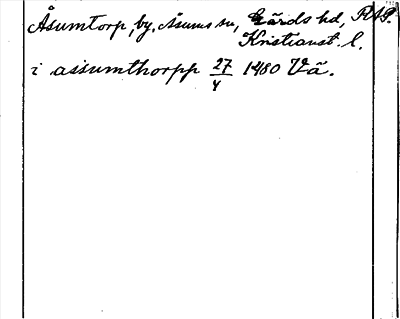 Åsumtorp, by, Åsums sn, Gärds hd,
Kristianst. l.
i assumthorpp 27/4 1480 Vä.